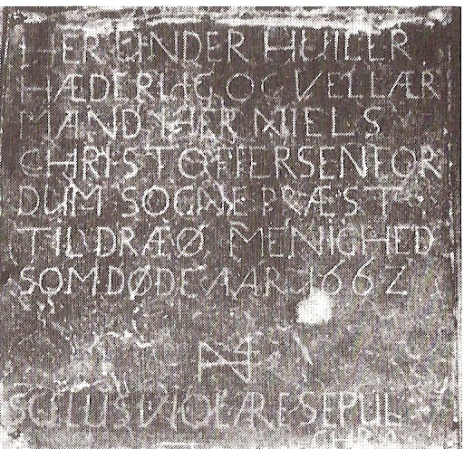 HER UNDER HUILER
HÆDERLIG OC VELLÆR
MAND HER NIELS
CHRISTOFERSEN FOR
DUM SOGNE PRÆST
TIL DRÆØ MENIGHED
SOM DØDE AAR 1662
SCELUS VIOLARE SEPUL